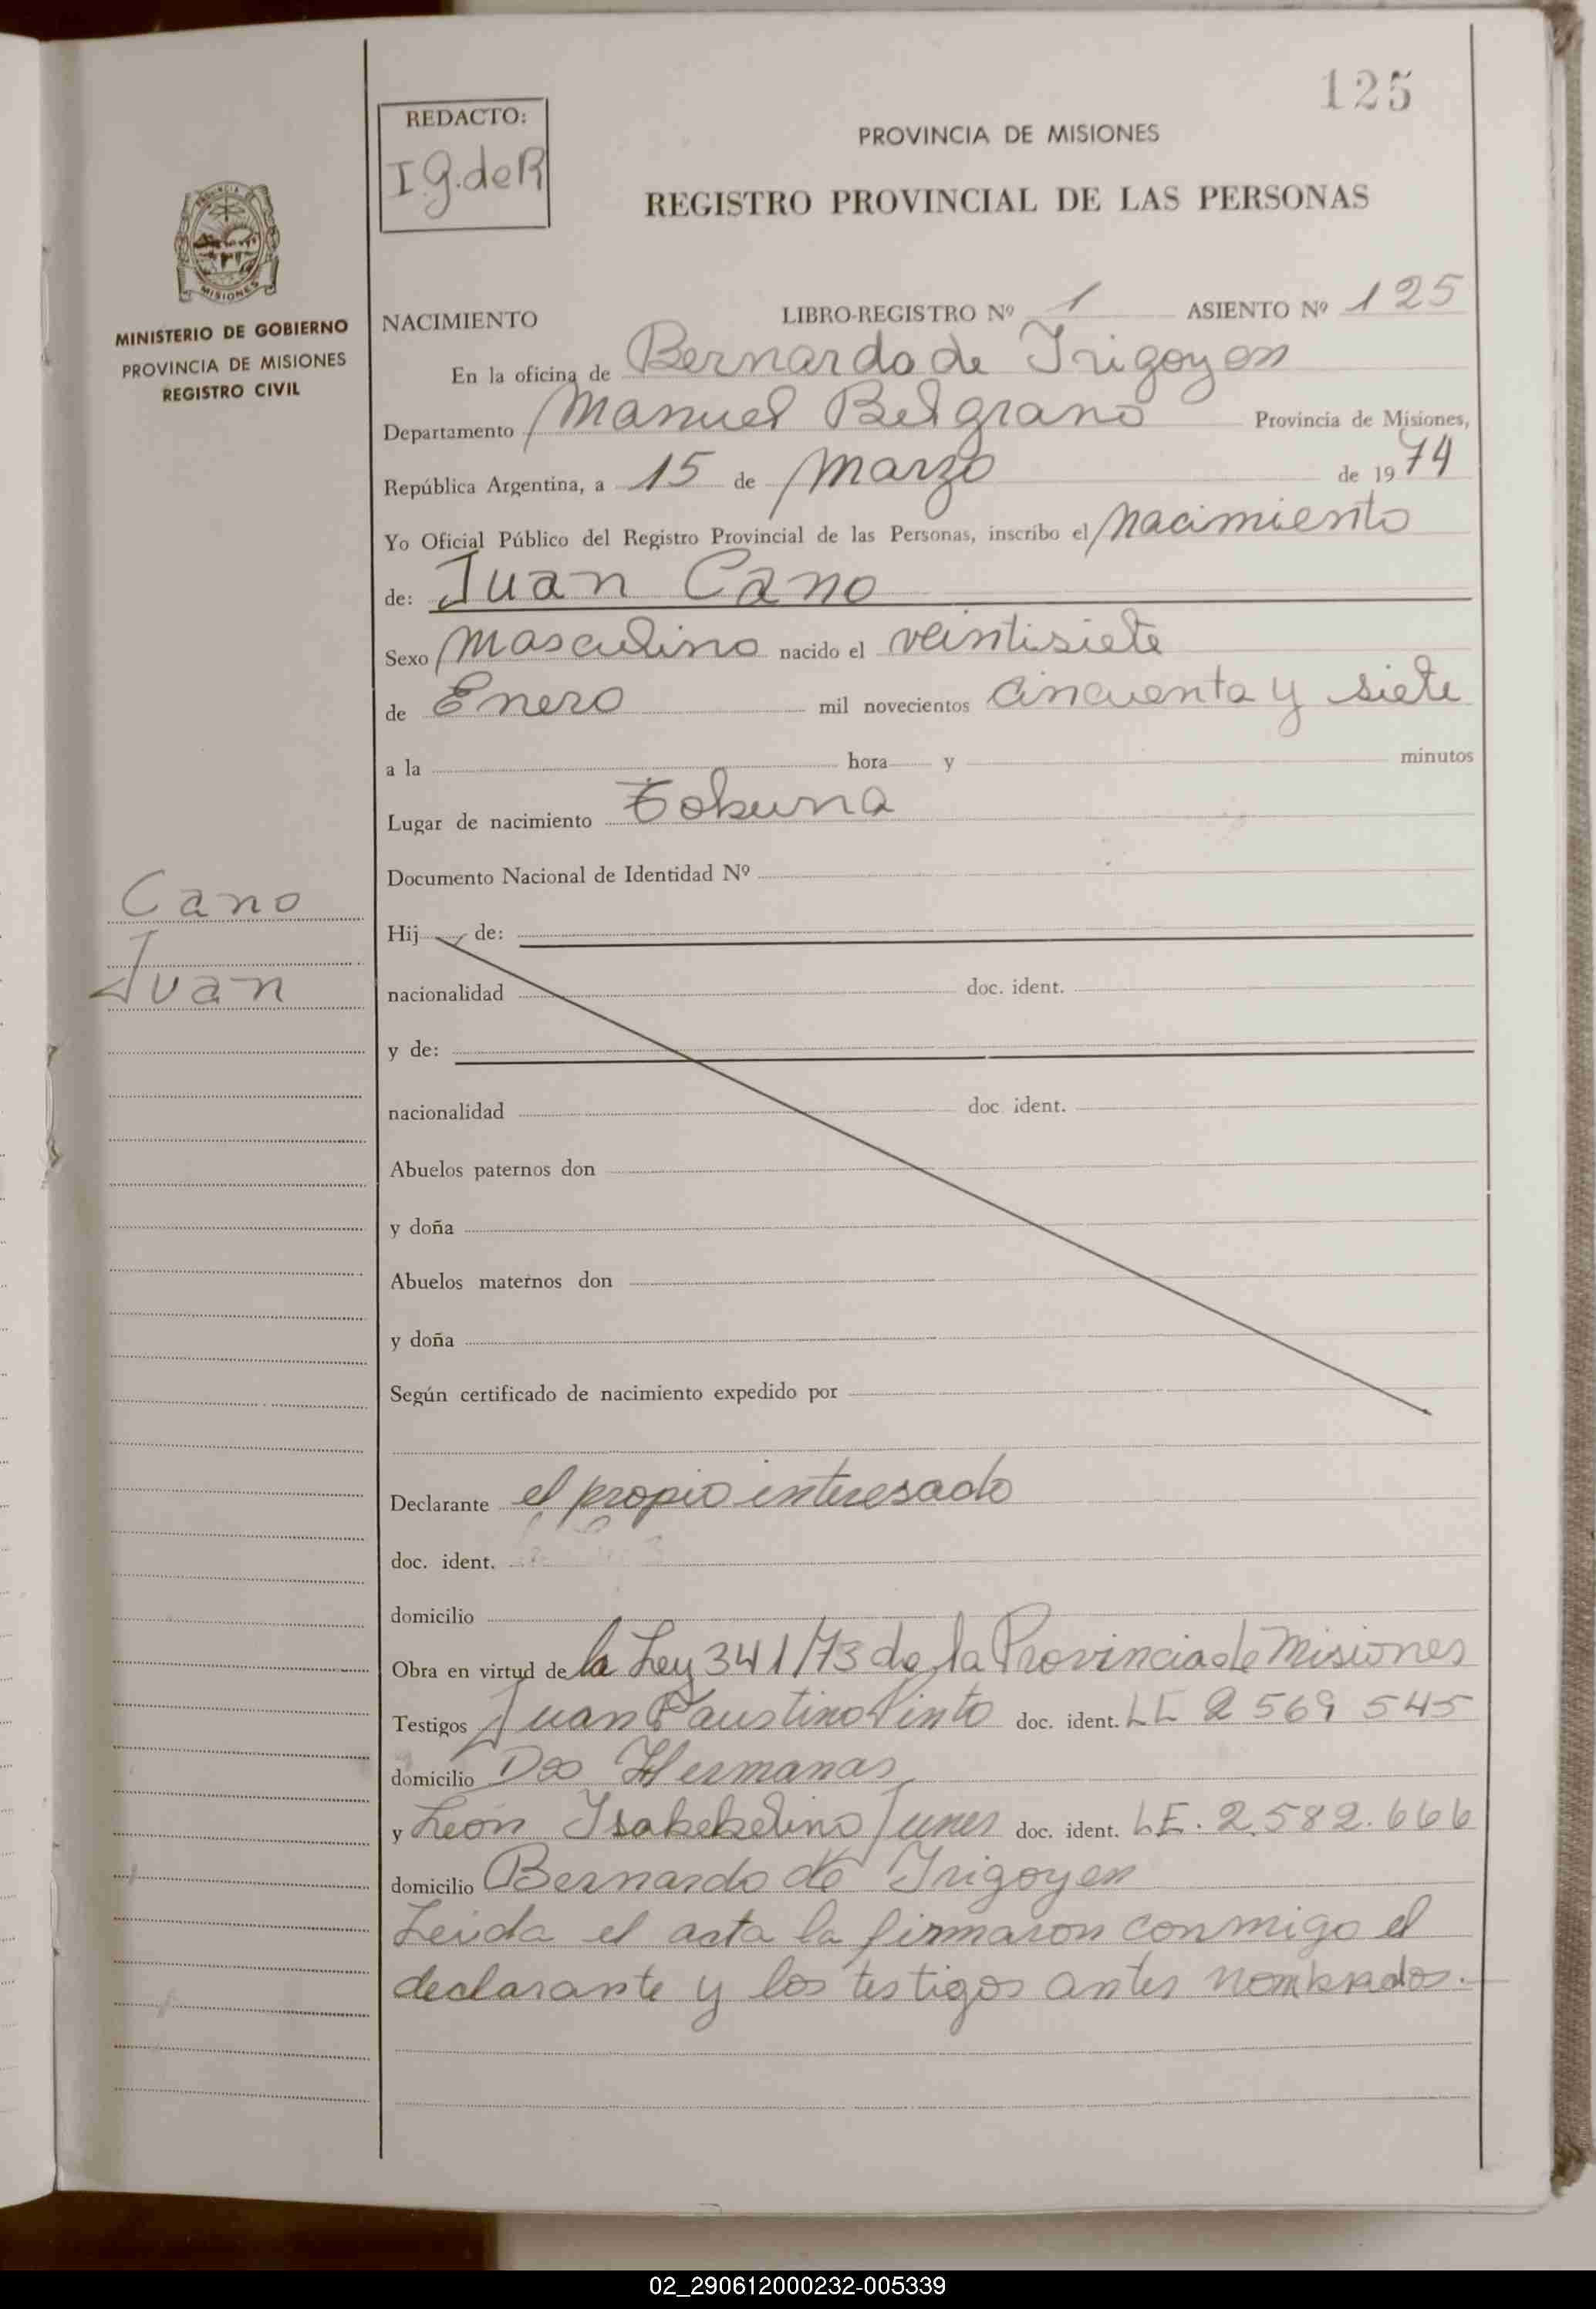 125
REDACTO:
I g. de R
PROVINCIA DE MISIONES
REGISTRO PROVINCIAL DE LAS PERSONAS
MISIONES
MINISTERIO DE GOBIERNO
PROVINCIA DE MISIONES
REGISTRO CIVIL
NACIMIENTO LIBRO-REGISTRO Nº 1 ASIENTO Nº 125
En la oficina de Bernardo de Irigoyen
Departamento Manuel Belgrano Provincia de Misiones,
República Argentina, a 15 de Marzo de 1974
Yo Oficial Público del Registro Provincial de las Personas, inscribo el nacimiento
de: Juan Cano
Sexo Masculino nacido el veintisiete
de Enero mil novecientos cincuenta y siete
a la hora y minutos
Lugar de nacimiento Tobuna
Documento Nacional de Identidad Nº
Cano
Juan
Hij de:
nacionalidad doc. ident.
y de:
nacionalidad doc. ident.
Abuelos paternos don
y doña
Abuelos maternos don
y doña
Según certificado de nacimiento expedido por
Declarante el propio interesado
doc. ident.
domicilio
Obra en virtud de la Ley 341/73 de la Provincia de Misiones
Testigos Juan Faustino Pinto doc. ident. LE 2 569 545
domicilio Dos Hermanas
y León doc. ident. LE. 2.582.666
domicilio Bernardo de Irigoyen
Leida el acta la firmaron conmigo el
declarante y los testigos antes nombrados.
02_290612000232-005339